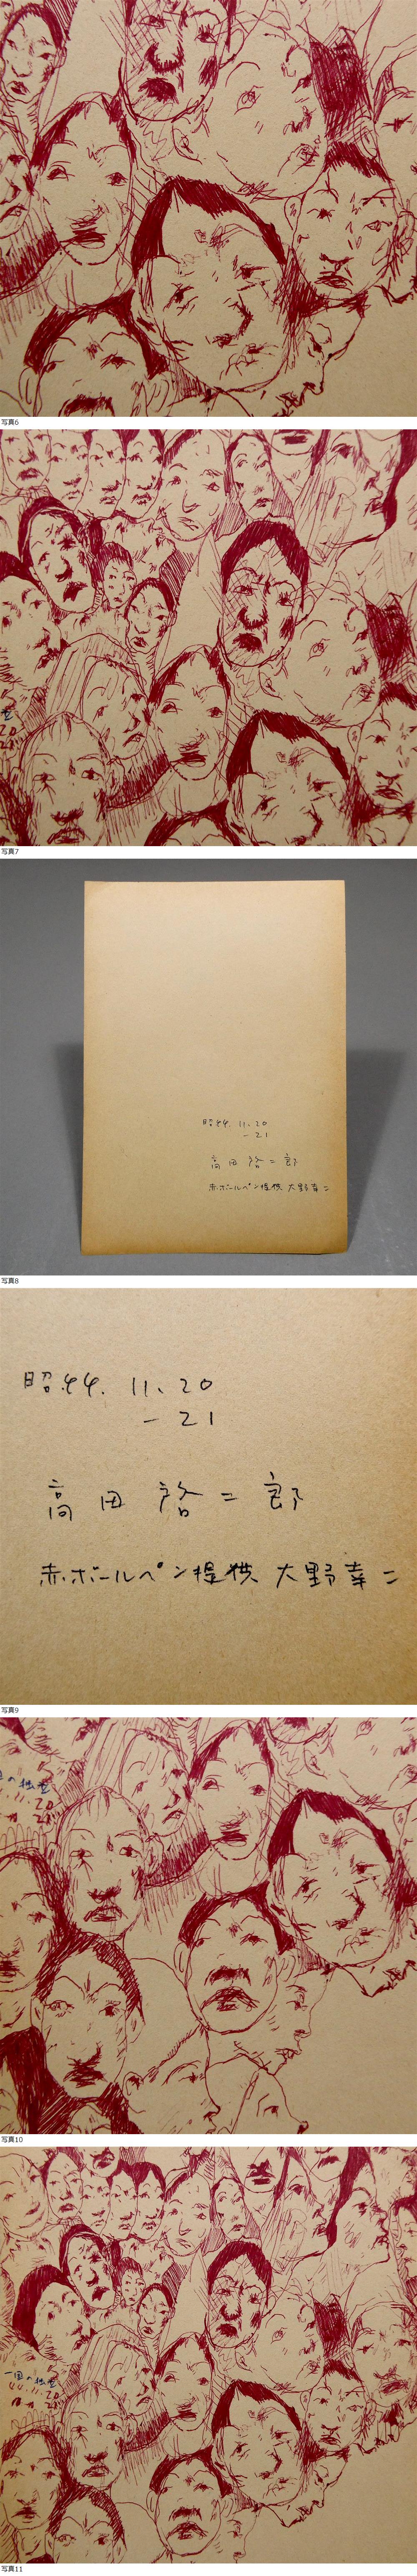 写真6
20
21
写真7
昭44. 11. 20
– 21
高田 啓二郎
赤ボールペン提供 大野幸二
写真8
昭.44. 11、20
– 21
高田 啓二郎
赤ボールペン提供 大野幸二
写真9
20
21
写真10
20
21
写真11